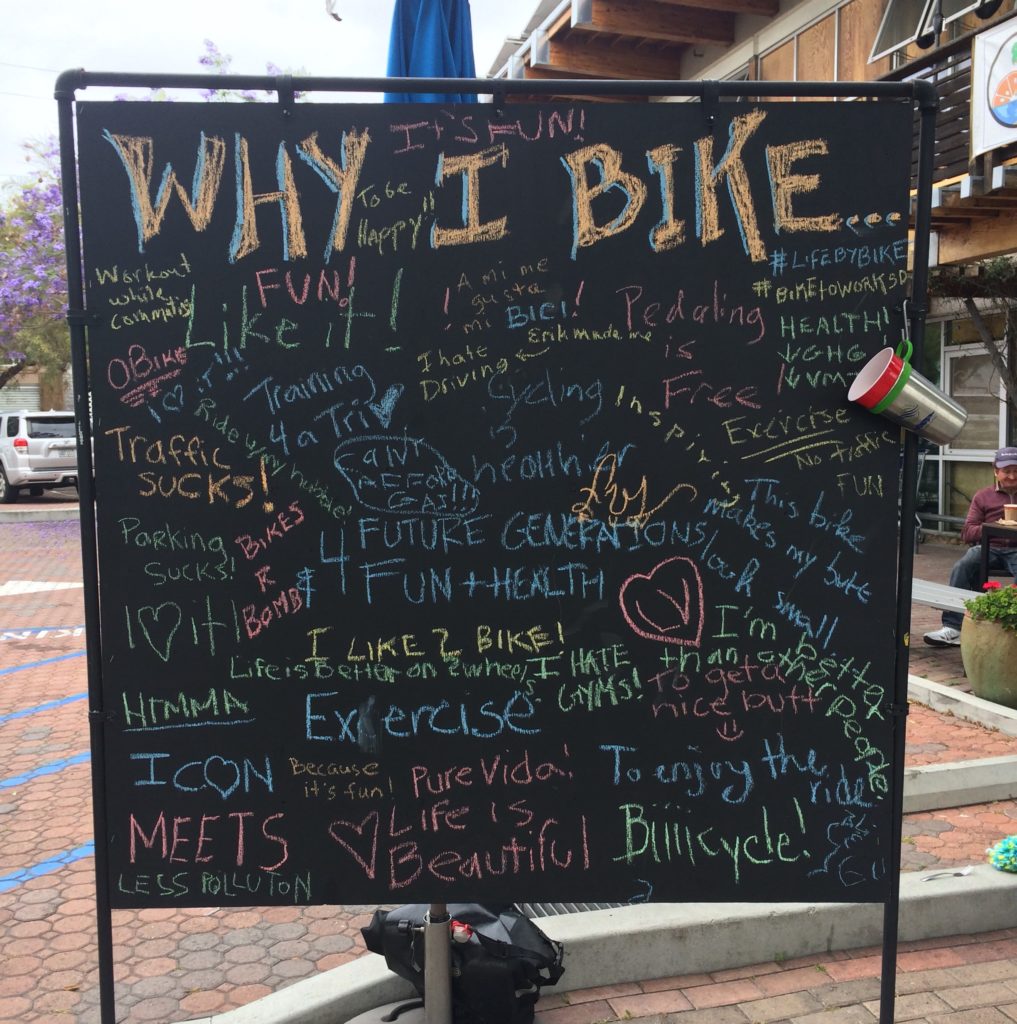 It's FUN!
WHY I BIKE...
To be
Happy!!
#LIFEBYBIKE
#BIKEtoWORKSD
Workout
while
commuting
FUN!
Like it!
A mi me
gusta
mi
BICI!
Erik made me
Pedaling
is
Free!
HEALTH!
↓GHG
↓VMT
OBIKE
I ♡ iT!!!
Training
4 a Tri
I hate
Driving
Cycling
is
healthier
Exercise
No Traffic
FUN
Traffic
SUCKS!
Ride w/ my hubbie!
BEFORE
GAS!!!
Luv
This bike
makes my butt
look small
Parking
SUCKS!
BIKES
R
BOMB
4 FUTURE GENERATIONS
& FUN + HEALTH
I ♡ it!
I LIKE 2 BIKE!
Life is Better on 2 wheels
I HATE
GYMS!
I'm better
than other people
To get a
nice butt
HIMMA
Exercise
ICON
Because
it's fun!
Pure Vida!
To enjoy the
ride
MEETS
♡ Life is
Beautiful
Biiiicycle!
LESS POLLUTON